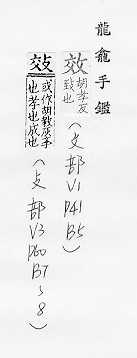 龍龕手鑑
效 胡孝反
致也
(文部 V1 P41 B5)
或作胡教反
也孝也成也
(支部 V3 P60 B7~8)